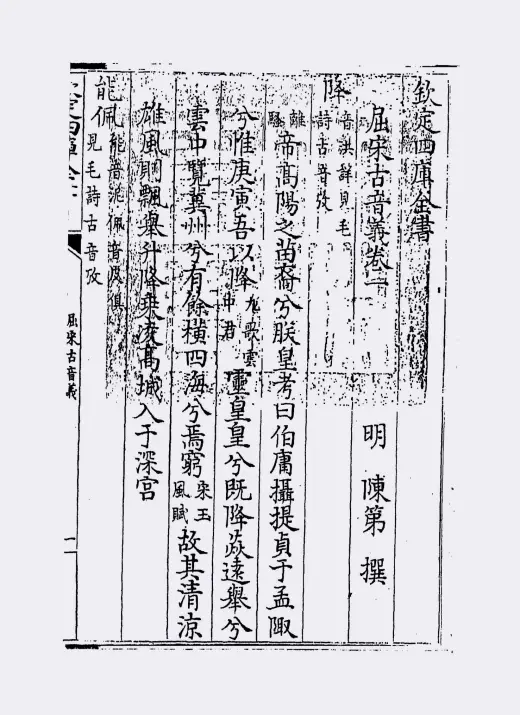 欽定四庫全書
屈宋古音義卷一
明 陳第 撰
降
音洪詳見毛
詩古音攷
離騷
帝高陽之苗裔兮朕皇考曰伯庸攝提貞于孟陬
兮惟庚寅吾以降
九歌雲中君
靈皇皇兮既降猋遠舉兮
雲中覽冀州兮有餘橫四海兮焉窮
宋玉風賦
故其清涼
雄風則飄舉升降乘凌高城入于深宮
能佩
能音泥佩音皮俱
見毛詩古音攷
欽定四庫全書
屈宋古音義
一